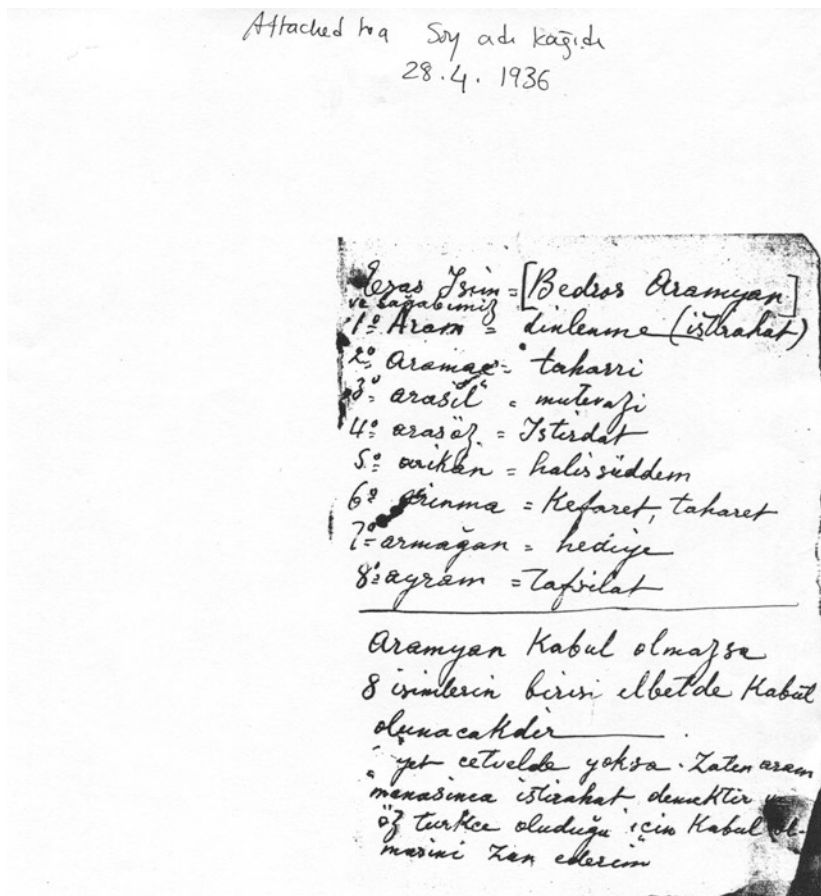 Attached to a Soy adı kağıdı
28.4. 1936
Esas Isim = [Bedros Aramyan]
ve bağabimiz
1º Aram = dinlenme (istirahat)
2º Aramac = taharri
3º arasıl = mutevazi
4º arasöz = Istirdat
5º arikan = halissüddem
6º arinma = Kefaret, taharet
7º armağan = hediye
8º ayram = Tafsilat
Aramyan Kabul olmazsa
8 isimlerin birisi elbet'de Kabül
olunacakdir
yet cetvelde yoksa. Zaten aram
manasinca istirahat demektir
öz turkce oluduğu için Kabul ol-
masini zan ederim